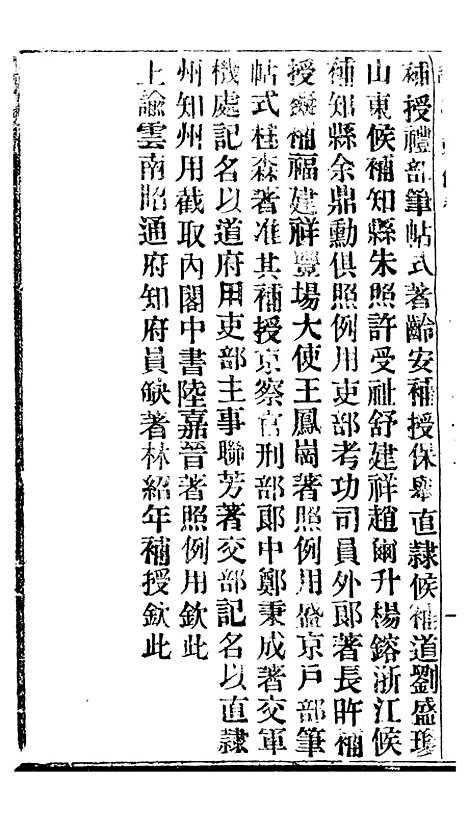 補授禮部筆帖式著齡安補授保舉直隸候補道劉盛珍
山東候補知縣朱照許受祉舒建祥趙爾升楊鎔浙江候
補知縣余鼎勳俱照例用吏部考功司員外郎著長昨補
授鹽補福建祥豐場大使王鳳崗著照例用盛京戶部筆
帖式桂森著准其補授京察官刑部郎中鄭秉成著交軍
機處記名以道府用吏部主事聯芳著交部記名以直隸
州知州用截取內閣中書陸嘉晉著照例用欽此
上諭雲南昭通府知府員缺著林紹年補授欽此